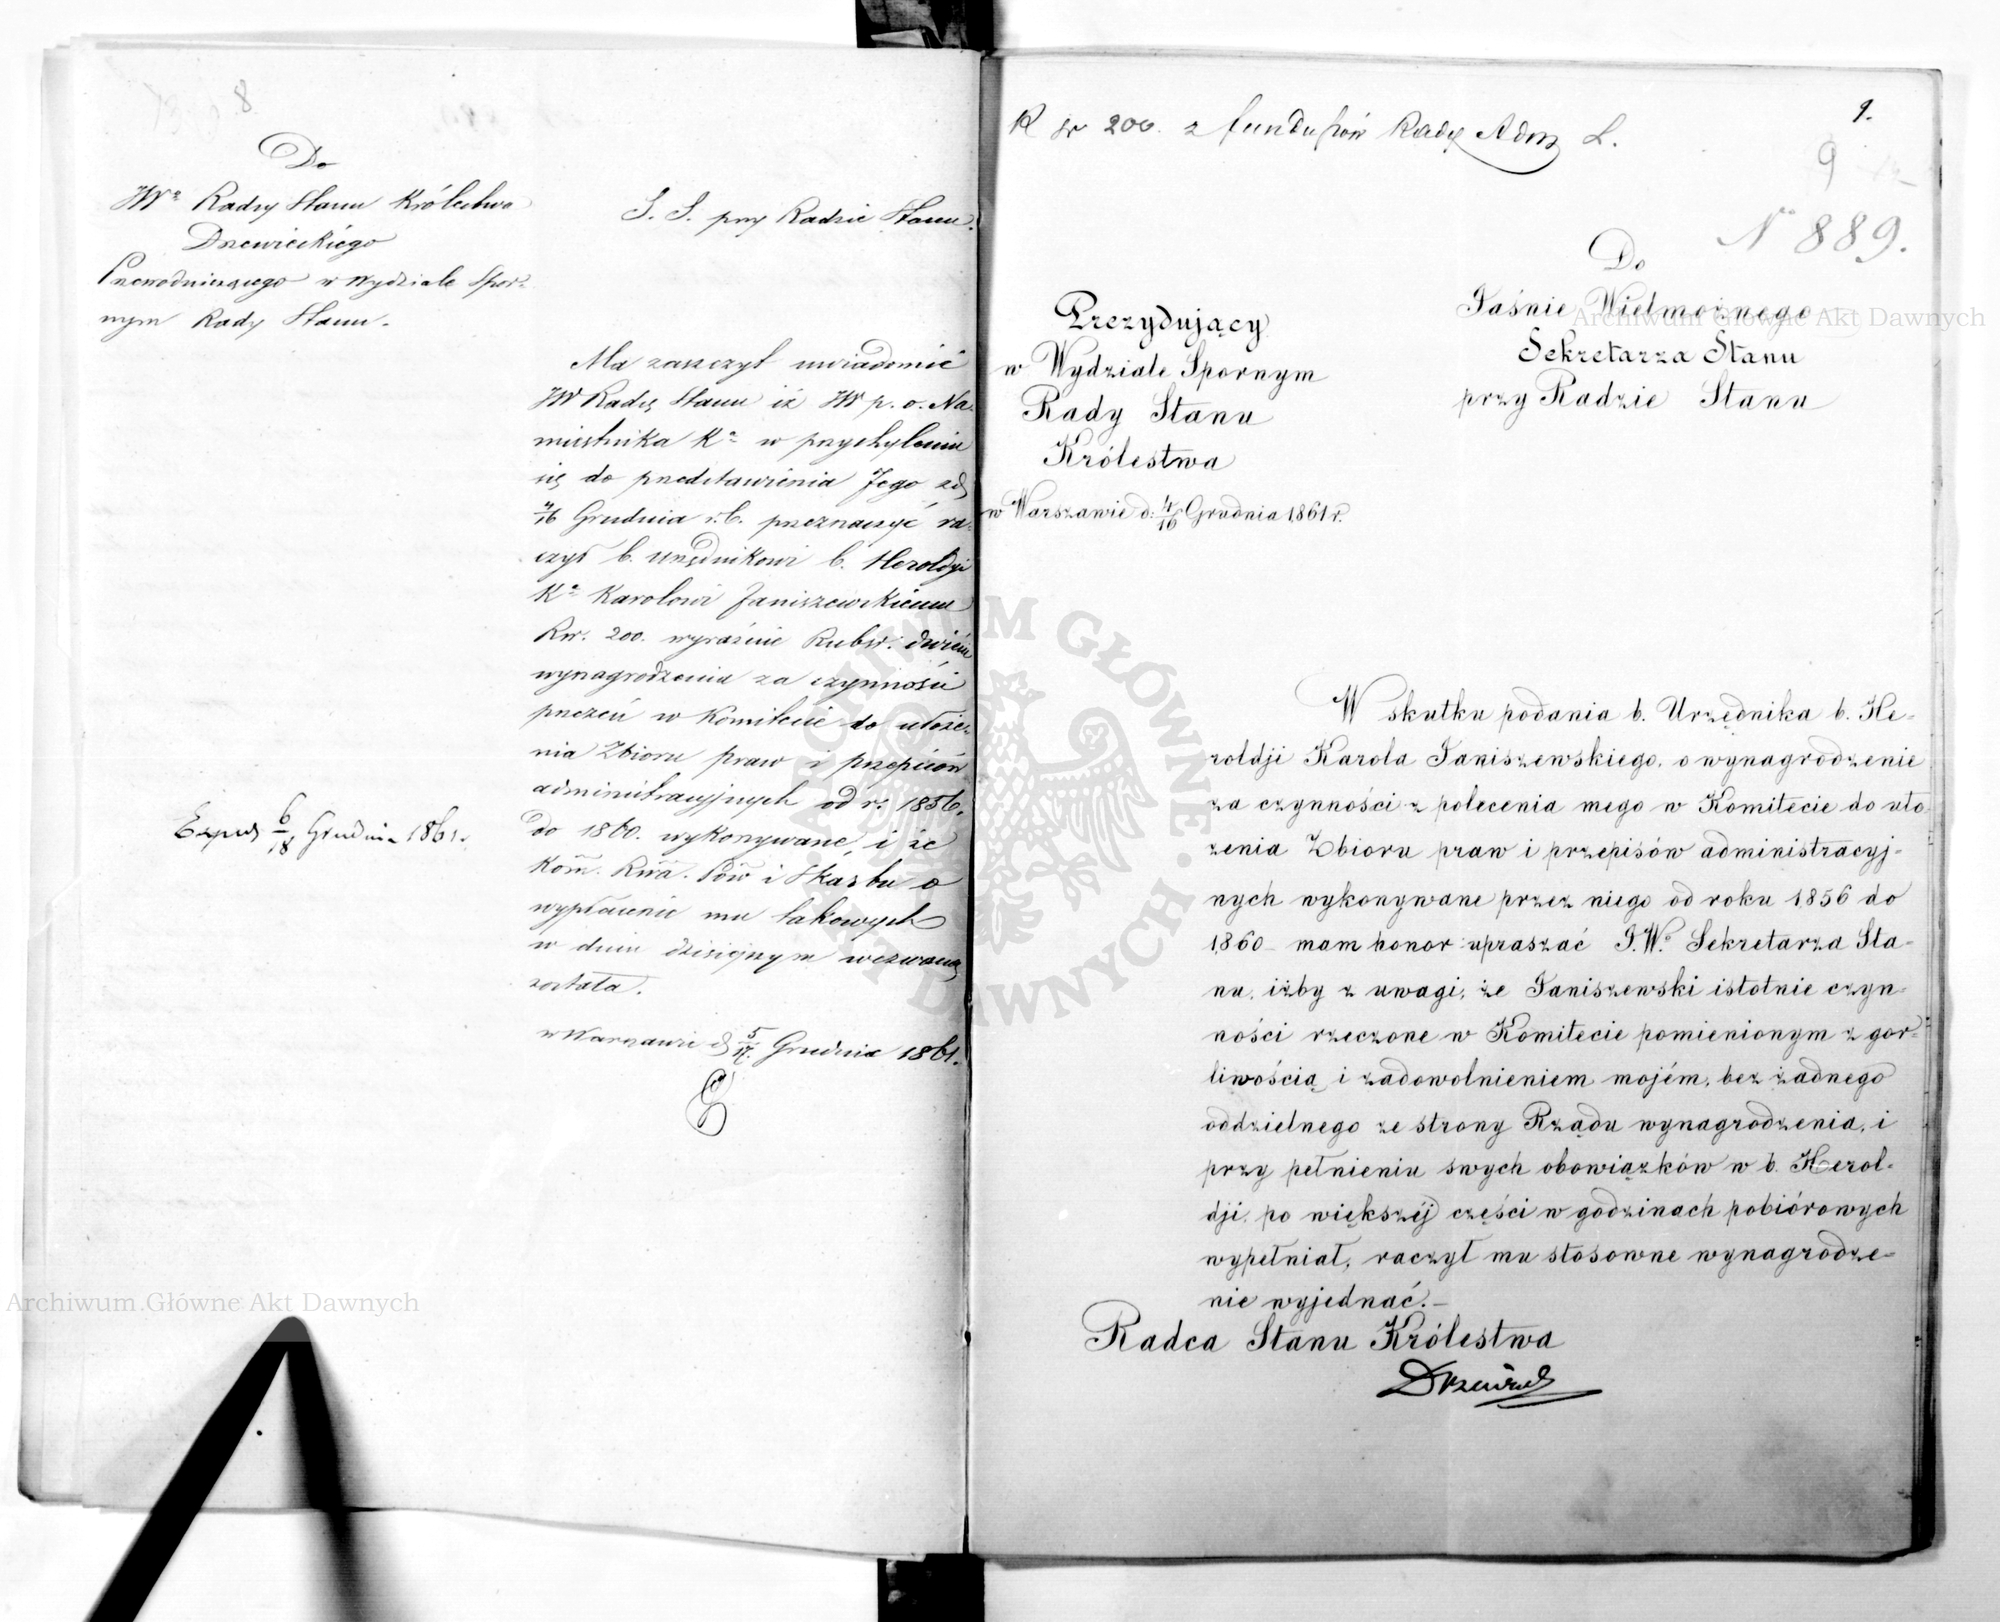 8
Do
JWo Radcy Stanu Królestwa
Drzewieckiego
Przewodniczącego w Wydziale Spor-
nym Rady Stanu.
S. S. przy Radzie Stanu.
Ma zaszczyt uwiadomić
JW Radcę Stanu iż JW p. o. Na-
miestnika Ka w przychyleniu
się do przedstawienia Jego z d.
4/16 Grudnia r. b. przeznaczyć ra-
czył b. urzędnikowi b. Heroldji
Ka Karolowi Janiszewskiemu
Rsr. 200. wyraźnie Rubsr. dwieście
wynagrodzenia za czynności
przezeń w Komitecie do ułoże-
nia Zbioru praw i przepisów
administracyjnych od r. 1856.
do 1860. wykonywane, i że
Kom. Rwa. Pów i Skarbu o
wypłacenie mu takowych
w dniu dzisiejszym wezwaną
została.
w Warszawie d. 5/17. Grudnia 1861.
Exped. 6/18 Grudnia 1861 r.
R sr 200. z funduszów Rady Adm
9.
9
No 889.
Do
Jaśnie Wielmożnego
Sekretarza Stanu
przy Radzie Stanu
Prezydujący
w Wydziale Spornym
Rady Stanu
Królestwa
w Warszawie d: 4/16 Grudnia 1861 r.
W skutku podania b. Urzędnika b. He-
roldji Karola Janiszewskiego, o wynagrodzenie
za czynności z polecenia mego w Komitecie do uło-
żenia Zbioru praw i przepisów administracyj-
nych wykonywane przez niego od roku 1856 do
1860 mam honor upraszać J.W. Sekretarza Sta-
nu, iżby z uwagi, że Janiszewski istotnie czyn-
ności rzeczone w Komitecie pomienionym z gor-
liwością i zadowolnieniem mojém, bez żadnego
oddzielnego ze strony Rządu wynagrodzenia, i
przy pełnieniu swych obowiązków w b. Herol-
dji, po większej części w godzinach pobiórowych
wypełniał, raczył mu stosowne wynagrodze-
nie wyjednać.—
Radca Stanu Królestwa
Drzewiecki
Archiwum Główne Akt Dawnych
Archiwum Główne Akt Dawnych
ARCHIWUM GŁÓWNE AKT DAWNYCH